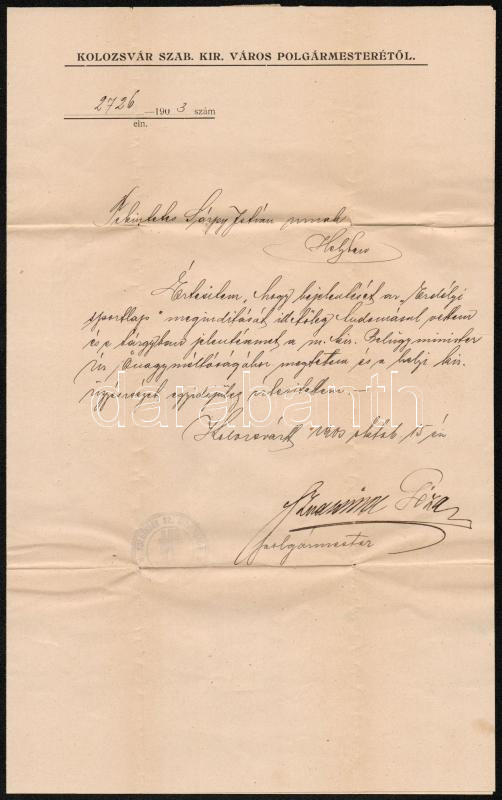 KOLOZSVÁR SZAB. KIR. VÁROS POLGÁRMESTERÉTŐL.
2726 —1903 szám
eln.
Tekintetes Sárpy István urnak
Helyben
Értesitem, hogy bejelentését az „Erdélyi
sportlap" meginditását illetőleg tudomásul vettem
és e tárgyban jelentésemet a m. kir. Belügyminister
úr Őnagyméltóságához megtettem és a helyi kir.
ügyészséget egyidejüleg értesitettem.—
Kolozsvárt 1903 október 15 én
Szvacsina Géza
polgármester
darabanth